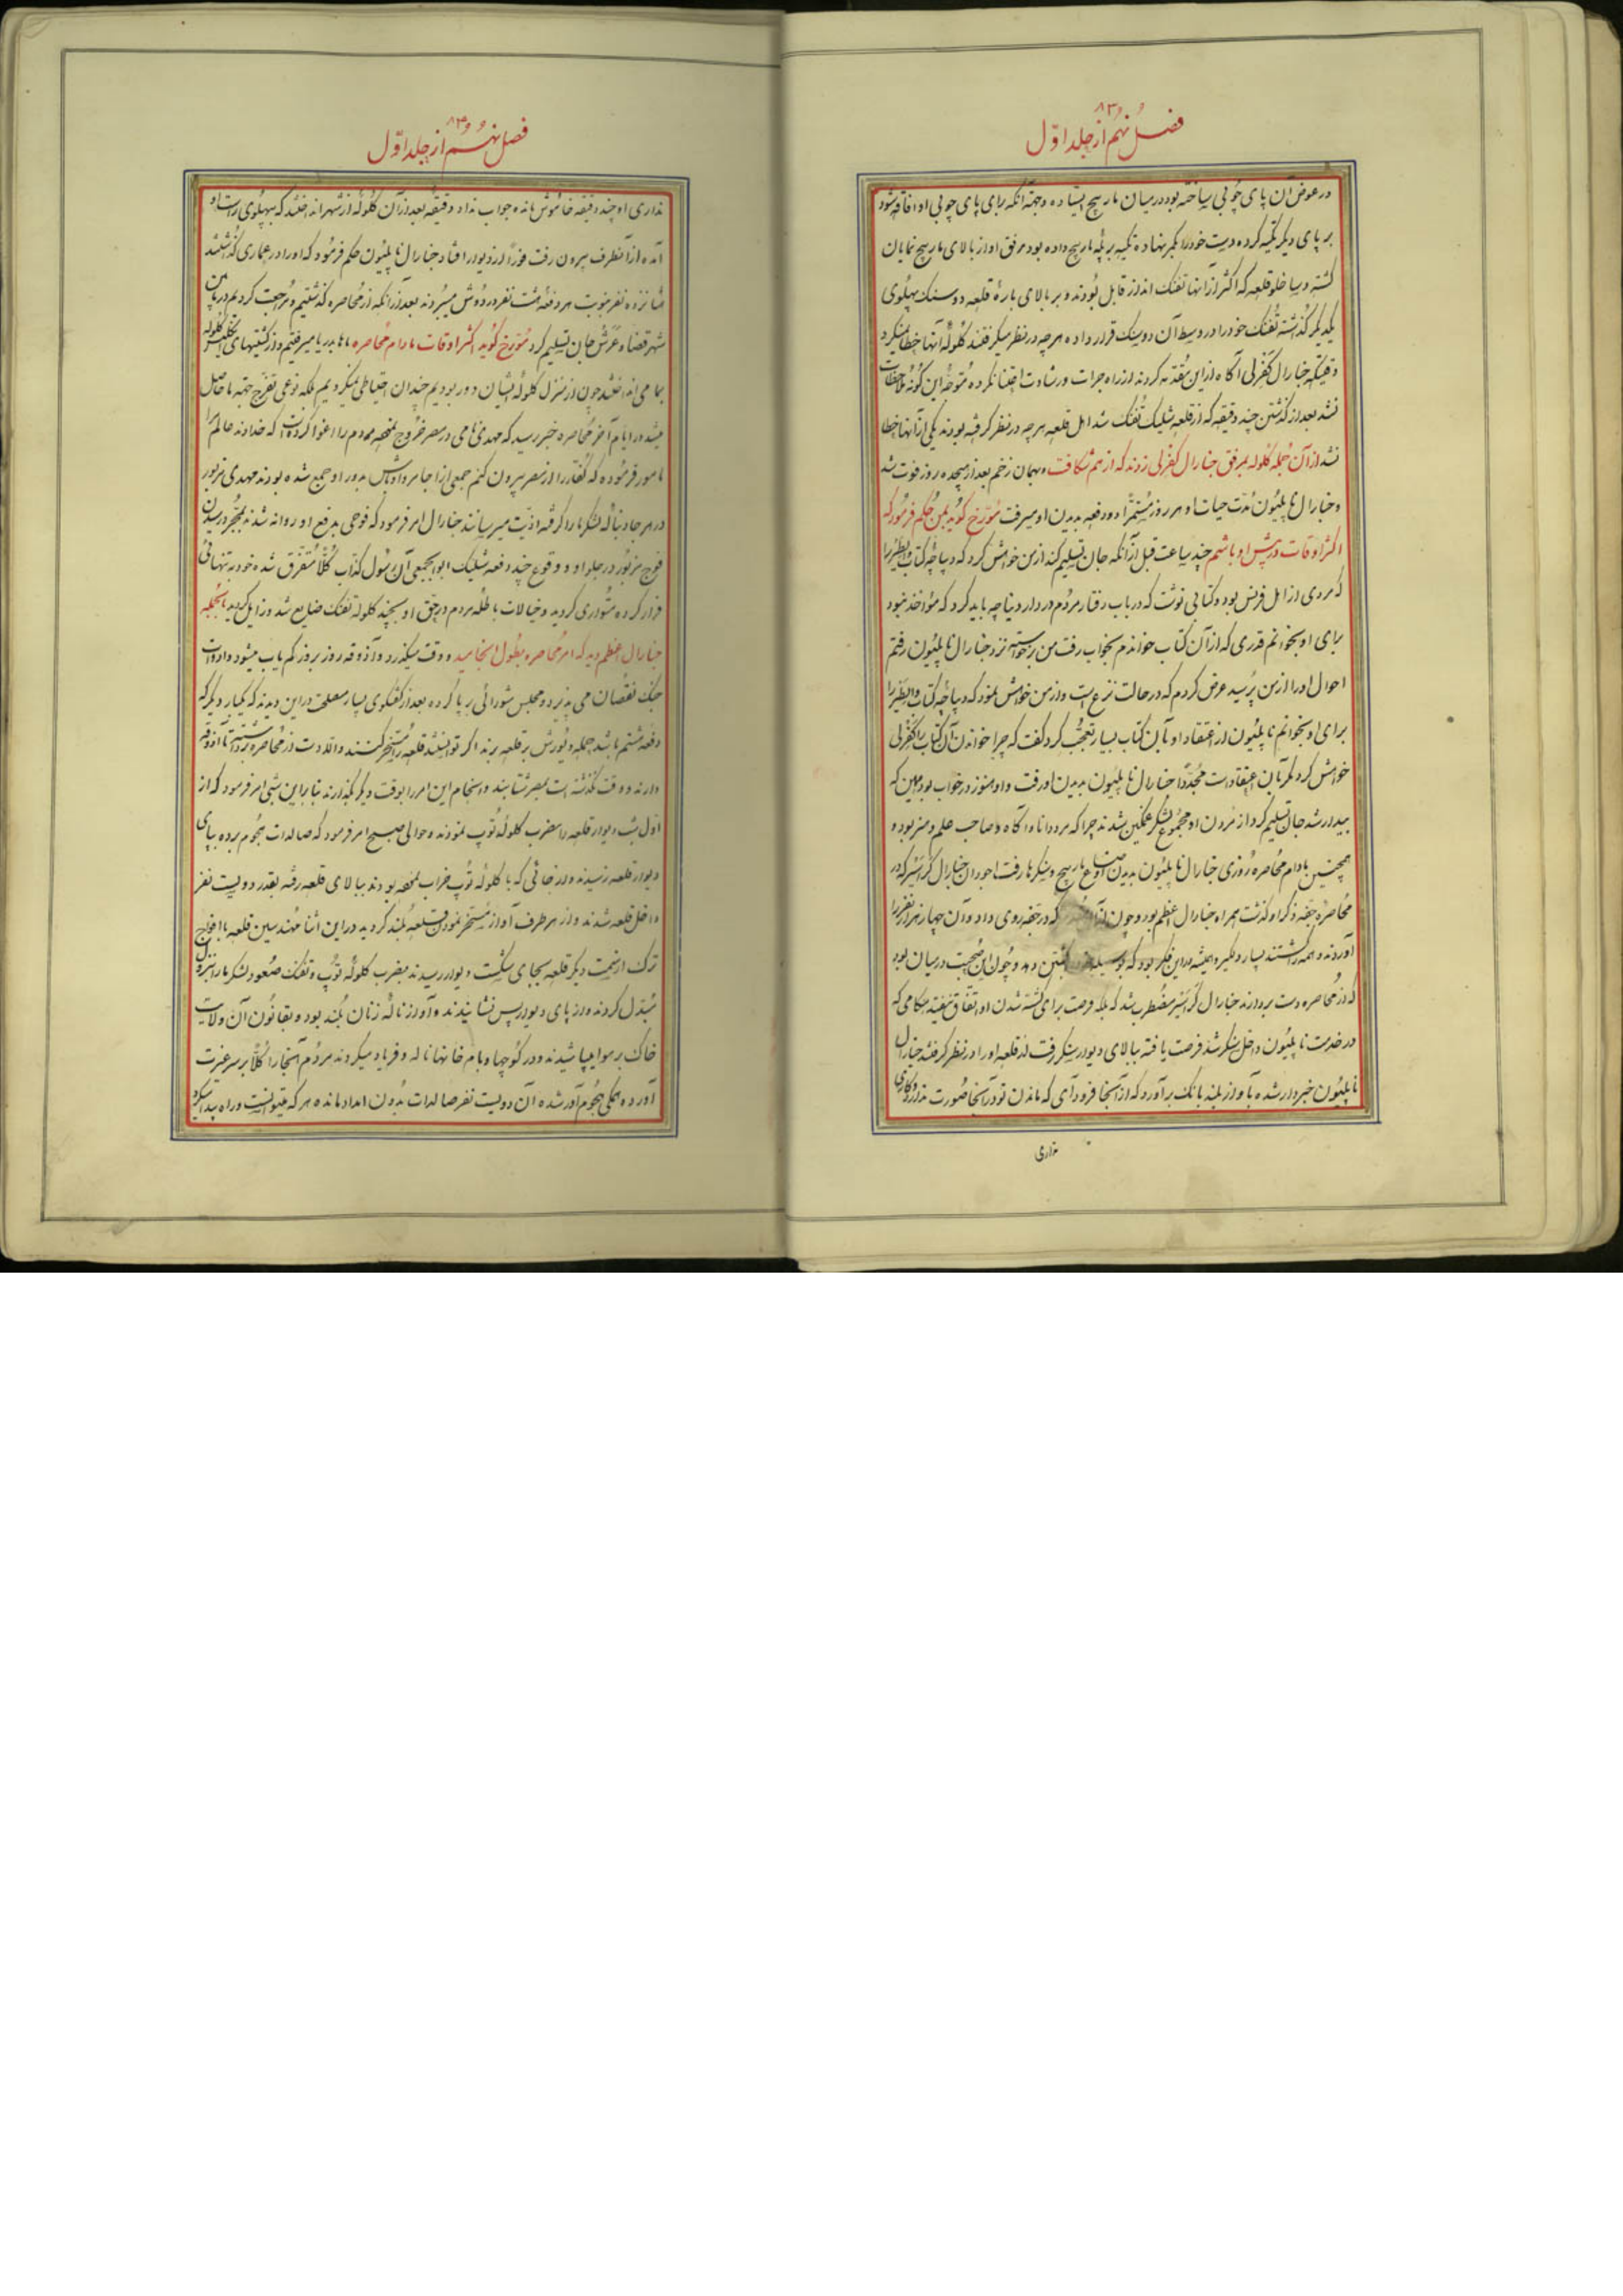 فصل نهم از جلد اول
۸۳
در عوض آن پای چوبی ساخته بود در میان مارپیچ ایستاده و جهته آنکه برای پای چوبی او افاقه شود
بر پای دیگر تکیه کرده دست خود را بکمر نهاده تکیه بر پله مارپیچ داده بود مرفق او از بالای مارپیچ نمایان
گشته و ساخلو قلعه که اکثر از آنها تفنک انداز قابل بودند و بر بالای بارهٔ قلعه دو سنک پهلوی
یکدیگر گذاشته تفنک خود را در وسط آن دو سنک قرار داده هر چه در نظر میگرفتند گلولهٔ آنها خطا نمیکرد
وقتیکه جنارال کفرلی آگاه از این مقدمه کردند از راه جرات و رشادت اعتنا نکرده متوجه این گونه ملاحظات
نشد بعد از گذشتن چند دقیقه که از قلعه شلیک تفنک شد اهل قلعه هر چه در نظر گرفته بودند یکی از آنها خطا
نشد از آن جمله گلوله بمرفق جنارال کفرلی زدند که از هم شکافت و بهمان زخم بعد از هیجده روز فوت شد
و جنارال ناپلیون مدت حیات او هر روز مستمراً دو دفعه بدیدن او میرفت مورخ گوید بمن حکم فرمود که
اکثر اوقات در پیش او باشم چند ساعت قبل از آنکه جان تسلیم کند از من خواهش کرد که دیباچه کتاب والطیر را
که مردی از اهل فرنس بود و کتابی نوشت که در باب رفتار مردم در دار دنیا چه باید کرد که مؤاخذ نبود
برای او بخوانم قدری که از آن کتاب خواندم بخواب رفت من برخواسته نزد جنارال ناپلیون رفتم
احوال او را از من پرسید عرض کردم که در حالت نزع است و از من خواهش نمود که دیباچه کتاب والطیر را
برای او بخوانم ناپلیون از اعتقاد او بآن کتاب بسیار تعجب کرد گفت که چرا خواندن آن کتاب را کفرلی
خواهش کرد مگر بآن اعتقاد است مجدداً جنارال ناپلیون بدیدن او رفت و او هنوز در خواب بود همین که
بیدار شد جان تسلیم کرد از مردن او مجموع لشکر غمگین شدند چرا که مرد دانا و آگاه و صاحب علم و هنر بود و
همچنین مادام محاصره روزی جنارال ناپلیون بدیدن مارپیچ و سنکرها رفت ماجودان جنارال که در
محاصره جفه ذکر او گذشت همراه جنارال اعظم بود و چون که در جفه روی داد و آن چهار هزار نفر را
آوردند و همه را کشتند بسیار دلگیر و همیشه در این فکر بود که بوسیله خود را بکشتن دهد و چون این صحبت در میان بود
که از محاصره دست بردارند جنارال مضطرب شد که بلکه فرصت برای کشته شدن او اتفاق نیفتد هنگامی که
در خدمت ناپلیون داخل سنکر شد فرصت یافته ببالای دیوار سنکر رفت از قلعه او را در نظر گرفتند جنارال
ناپلیون خبردار شده بآواز بلند بانک برآورد که از آنجا فرود آی که ماندن تو در آنجا صورت ندارد و کاری
نداری
فصل نهم از جلد اول
۸۳
نداری او چند دقیقه خاموش مانده جواب نداد دقیقهٔ بعد از آن گلوله از شهر انداختند که بپهلوی راست او
آمده از آنطرف بیرون رفت فوراً از دیوار افتاد جنارال ناپلیون حکم فرمود که او را در عماری گذاشتند
شانزده نفر بنوبت هر دفعه هشت نفر در دوش میبردند بعد از آنکه از محاصره گذشتیم و مراجعت کردیم در پائین
شهر قضا و عزش جان تسلیم کرد مورخ گوید اکثر اوقات مادام محاصره ماها بدریا میرفتیم و از کشتیهای انگلیس گلوله
بما می انداختند چون از منزل گلولهٔ ایشان دور بودیم چندان احتیاطی نمیکردیم بلکه نوعی تفرج جهته ما حاصل
میشد در ایام آخر محاصره خبر رسید که مهدی نامی در مصر خروج نموده مردم را اغوا کرده است که خداوند عالم مرا
مامور فرموده که کفار را از مصر بیرون کنم جمعی از اجامر و اوباش بدور او جمع شده بودند مهدی مزبور
در هر جا دنباله لشکر ما را گرفته اذیت میرسانند جنارال امر فرمود که فوجی بدفع او روانه شدند بمجرد رسیدن
فوج مزبور در جلو او و وقوع چند دفعه شلیک ابوابجمعی آن رسول کذاب کلاً متفرق شده خود به تنهائی
فرار کرده متواری گردید و خیالات باطله مردم در حق او بچند گلوله تفنک ضایع شد و زایل گردید بالجمله
جنارال اعظم دید که امر محاصره بطول انجامید و وقت میگذرد و آذوقه روز بروز کم یاب میشود و ادوات
جنک نقصان می پذیرد و مجلس شورائی برپا کرده بعد از گفتگوی بسیار مصلحت در این دیدند که یکبار دیگر که
دفعه هشتم باشد حمله و یورش بر قلعه برند اگر توانستند قلعه را مسخر کنند و الا دست از محاصره برداشته تا آذوقه
دارند و وقت نگذشته است بمصر شتابند و انجام این امر را بوقت دیگر گذارند بنابراین شبی امر فرمود که از
اول شب دیوار قلعه را بضرب گلولهٔ توپ نمودند و حوالی صبح امر فرمود که صالدات هجوم برده بپای
دیوار قلعه رسیدند و از جائی که با گلوله توپ خراب نموده بودند ببالای قلعه رفته بقدر دویست نفر
داخل قلعه شدند و از هر طرف آواز مسخر نمودن قلعه بلند گردید در این اثنا مهندسین قلعه با افواج
ترک از سمت دیگر قلعه بجای شکست دیوار رسیدند بضرب گلولهٔ توپ و تفنک صعود لشکر ما را بنزول
مبدل کردند و از پای دیوار پس نشانیدند و آواز نالهٔ زنان بلند بود و بقانون آن ولایت
خاک بر هوا میپاشیدند و در کوچها و بام خانها ناله و فریاد میکردند مردم آنجا را کلاً بر سر غیرت
آورده همگی هجوم آور شده آن دویست نفر صالدات بدون امداد مانده هر که میتوانست و راه پیدا میکرد